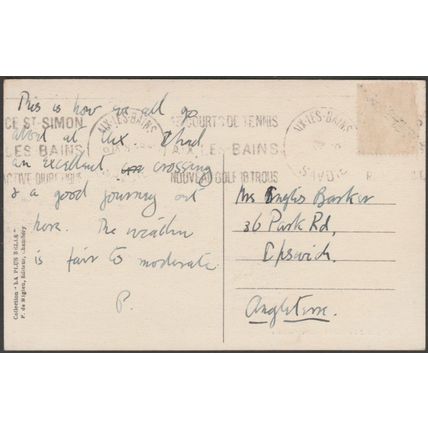 This is how we all go
about at Aix. I had
an excellent crossing
& a good journey out
here. The weather
is fair to moderate
P.
Mrs Inglis Barker
36 Park Rd,
Ipswich.
Angleterre.
CE ST-SIMON
LES BAINS
AIX-LES-BAINS
COURTS DE TENNIS
AIX-LES-BAINS
NOUVEAU GOLF 18 TROUS
AIX-LES-BAINS
Collection "LA PLUS BELLE"
Editeur, Chambéry